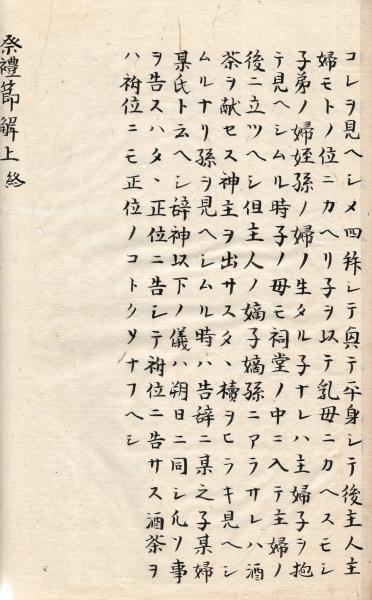 コレヲ見ヘシメ四拜シテ興テ平身シテ後主人主
婦モトノ位ニカヘリ子ヲ以テ乳母ニカヘスモシ
子弟ノ婦姪孫ノ婦ノ生タル子ナレハ主婦子ヲ抱
テ見ヘシムル時子ノ母モ祠堂ノ中ニ入テ主婦ノ
後ニ立ツヘシ但主人ノ嫡子嫡孫ニアラサレハ酒
茶ヲ献セス神主ヲ出サスタヽ櫝ヲヒラキ見ヘシ
ムルナリ孫ヲ見ヘシムル時ハ告辞ニ某之子某婦
某氏ト云ヘシ辞神以下ノ儀ハ朔日ニ同シ凡ソ事
ヲ告スハタヽ正位ニ告シテ祔位ニ告サス酒茶ヲ
ハ祔位ニモ正位ノコトクソナフヘシ
祭禮節解上終